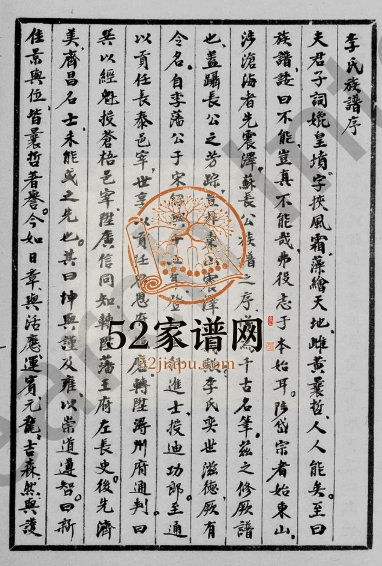 李氏族譜序
夫君子詞媲皇墳字挾風霜藻繪天地雌黃曩哲人人能矣至曰
族譜諉曰不能豈真不能哉弗役志于本始耳陟岱宗者始東山
涉滄海者先震澤蘇長公族譜之序為千古名筆茲之修厥譜
也蓋躡長公之芳踪豈東山震澤李氏奕世滋德厥有
令名自李藩公于宋紹興十五年登科進士授迪功郎至通
以貢任長泰邑宰世享以貢任思恩轉陞潯州府通判曰
英以經魁授蒼梧邑宰陞廣信同知轉陞藩王府左長史後先濟
美齊昌名士未能或之先也其曰坤與謹及雍以崇道遵智曰新
佳景與伍皆曩哲著譽今如日章與活應運賓元龍吉森然與護
52家谱网
52jiapu.com